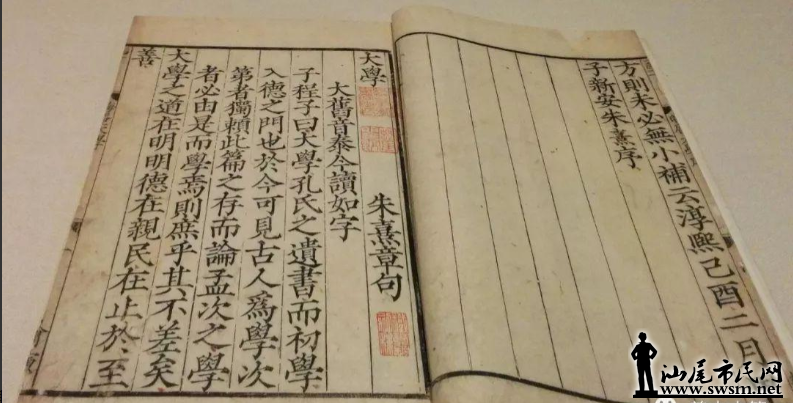 方則未必無小補云淳熙己酉二月
子新安朱熹序
大學
朱熹章句
大舊音泰今讀如字
子程子曰大學孔氏之遺書而初學
入德之門也於今可見古人爲學次
第者獨賴此篇之存而論孟次之學
者必由是而學焉則庶乎其不差矣
大學之道在明明德在親民在止於至
善
汕尾市民网
www.swsm.net